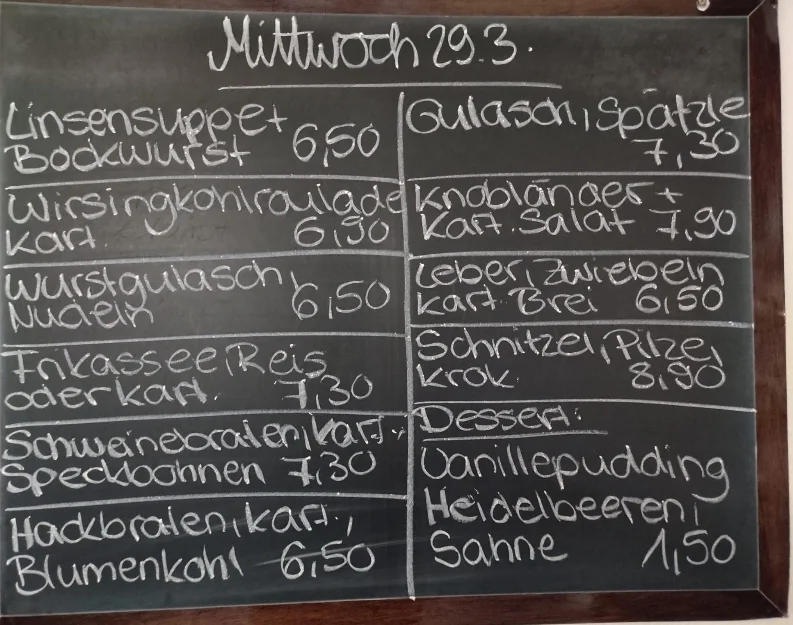 Mittwoch 29.3.
Linsensuppe +
Bockwurst 6,50
Wirsingkohlroulade
Kart. 6,90
Wurstgulasch,
Nudeln 6,50
Frikassee, Reis
oder Kart. 7,30
Schweinebraten, Kart.,
Speckbohnen 7,30
Hackbraten, Kart.,
Blumenkohl 6,50
Gulasch, Spätzle
7,30
Knobländer +
Kart. Salat 7,90
Leber, Zwiebeln
Kart Brei 6,50
Schnitzel, Pilze,
Krok. 8,90
Dessert:
Vanillepudding
Heidelbeeren,
Sahne 1,50